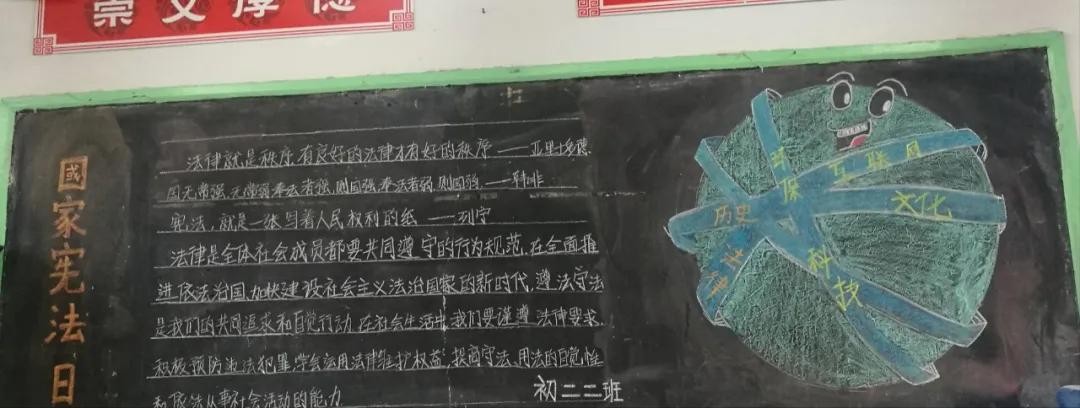 崇文厚德
國家宪法日
法律就是秩序,有良好的法律才有好的秩序——亚里士多德
国无常强,无常弱,奉法者强,则国强,奉法者弱,则国弱。——韩非
宪法,就是一张写着人民权利的纸 ——列宁
法律是全体社会成员都要共同遵守的行为规范.在全面推
进依法治国,加快建设社会主义法治国家的新时代,遵法守法
是我们的共同追求和自觉行动.在社会生活中,我们要谨遵法律要求,
积极预防违法犯罪,学会运用法律维护权益,提高守法、用法的自觉性
和依法从事社会活动的能力
初二二班
互联网
环保
文化
历史
科技